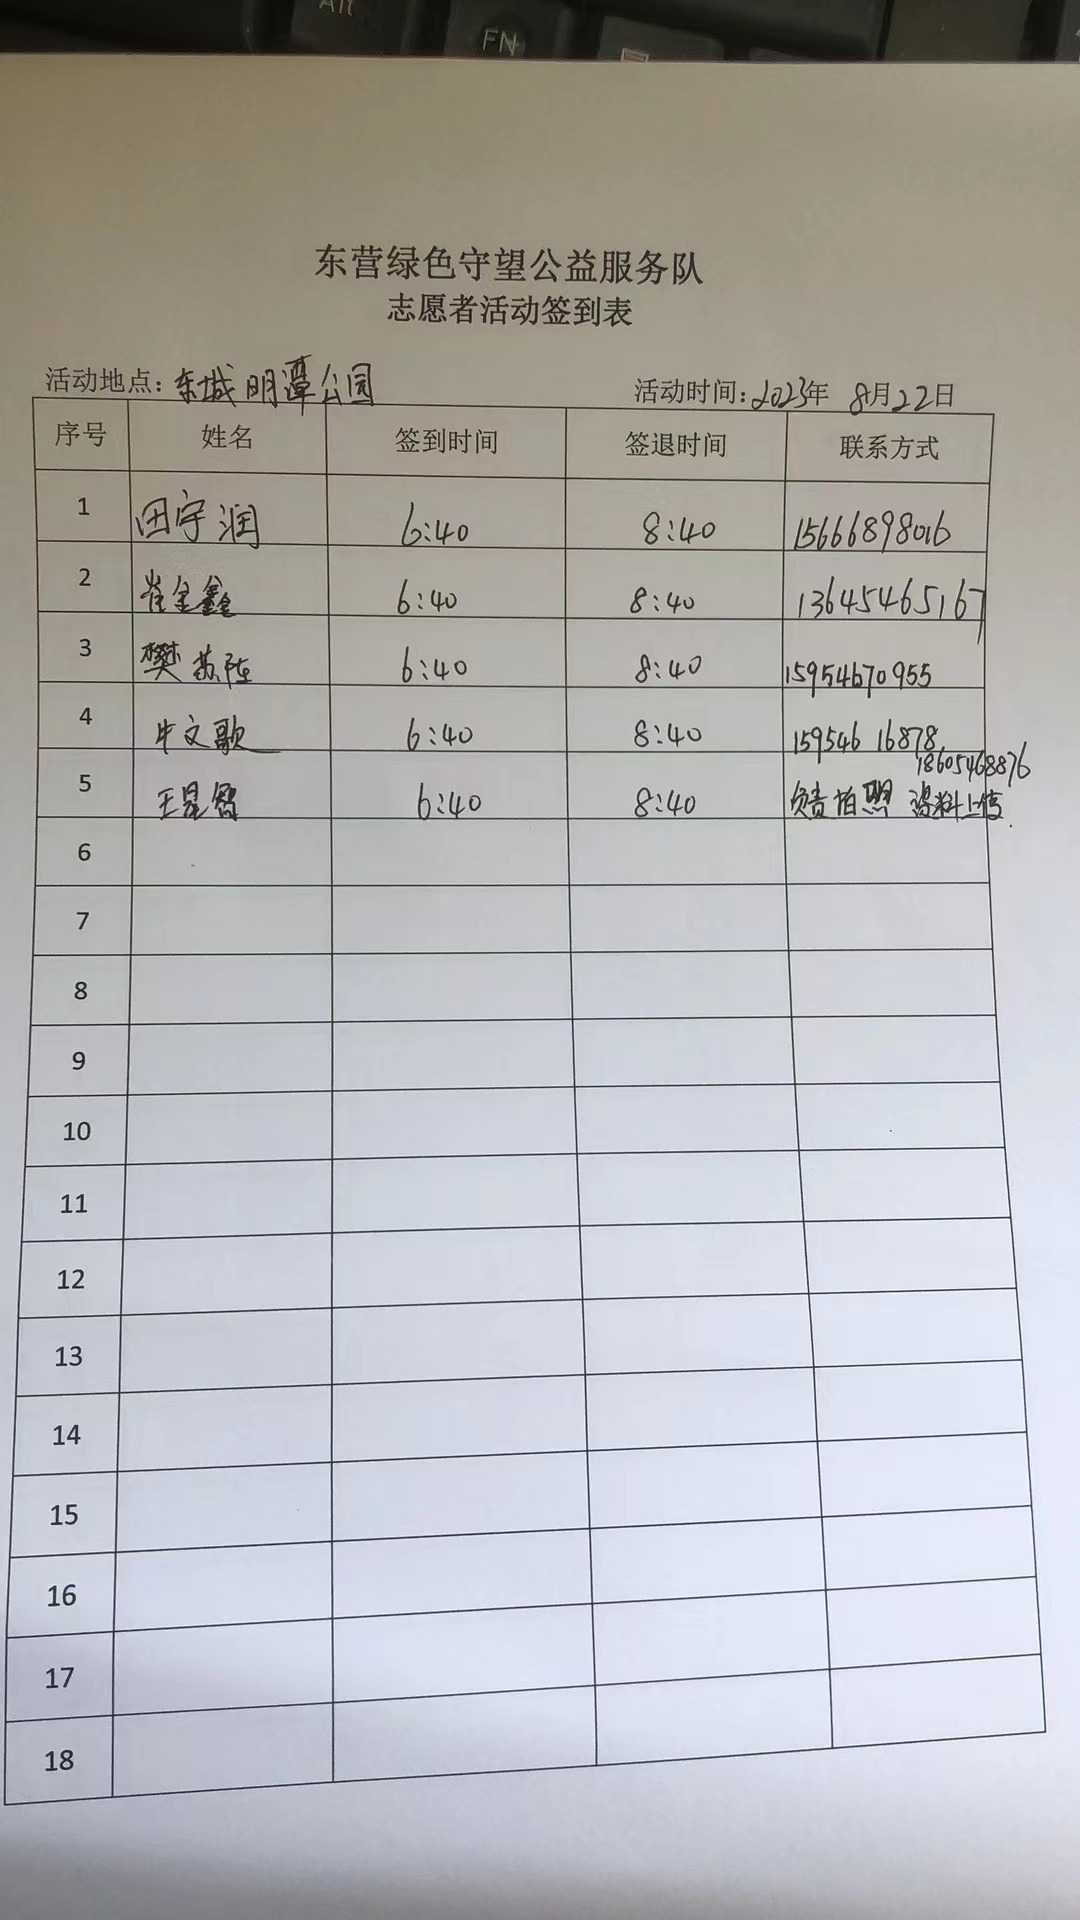 Alt
FN
东营绿色守望公益服务队
志愿者活动签到表
活动地点：东城明潭公园 活动时间：2023年 8月22日
序号 姓名 签到时间 签退时间 联系方式
1 田宇润 6:40 8:40 15666898016
2 崔金鑫 6:40 8:40 13645465167
3 樊苏陈 6:40 8:40 15954670955
4 牛文歌 6:40 8:40 15954616878
18605468876
5 王星智 6:40 8:40 负责拍照 资料上传.
6
7
8
9
10
11
12
13
14
15
16
17
18